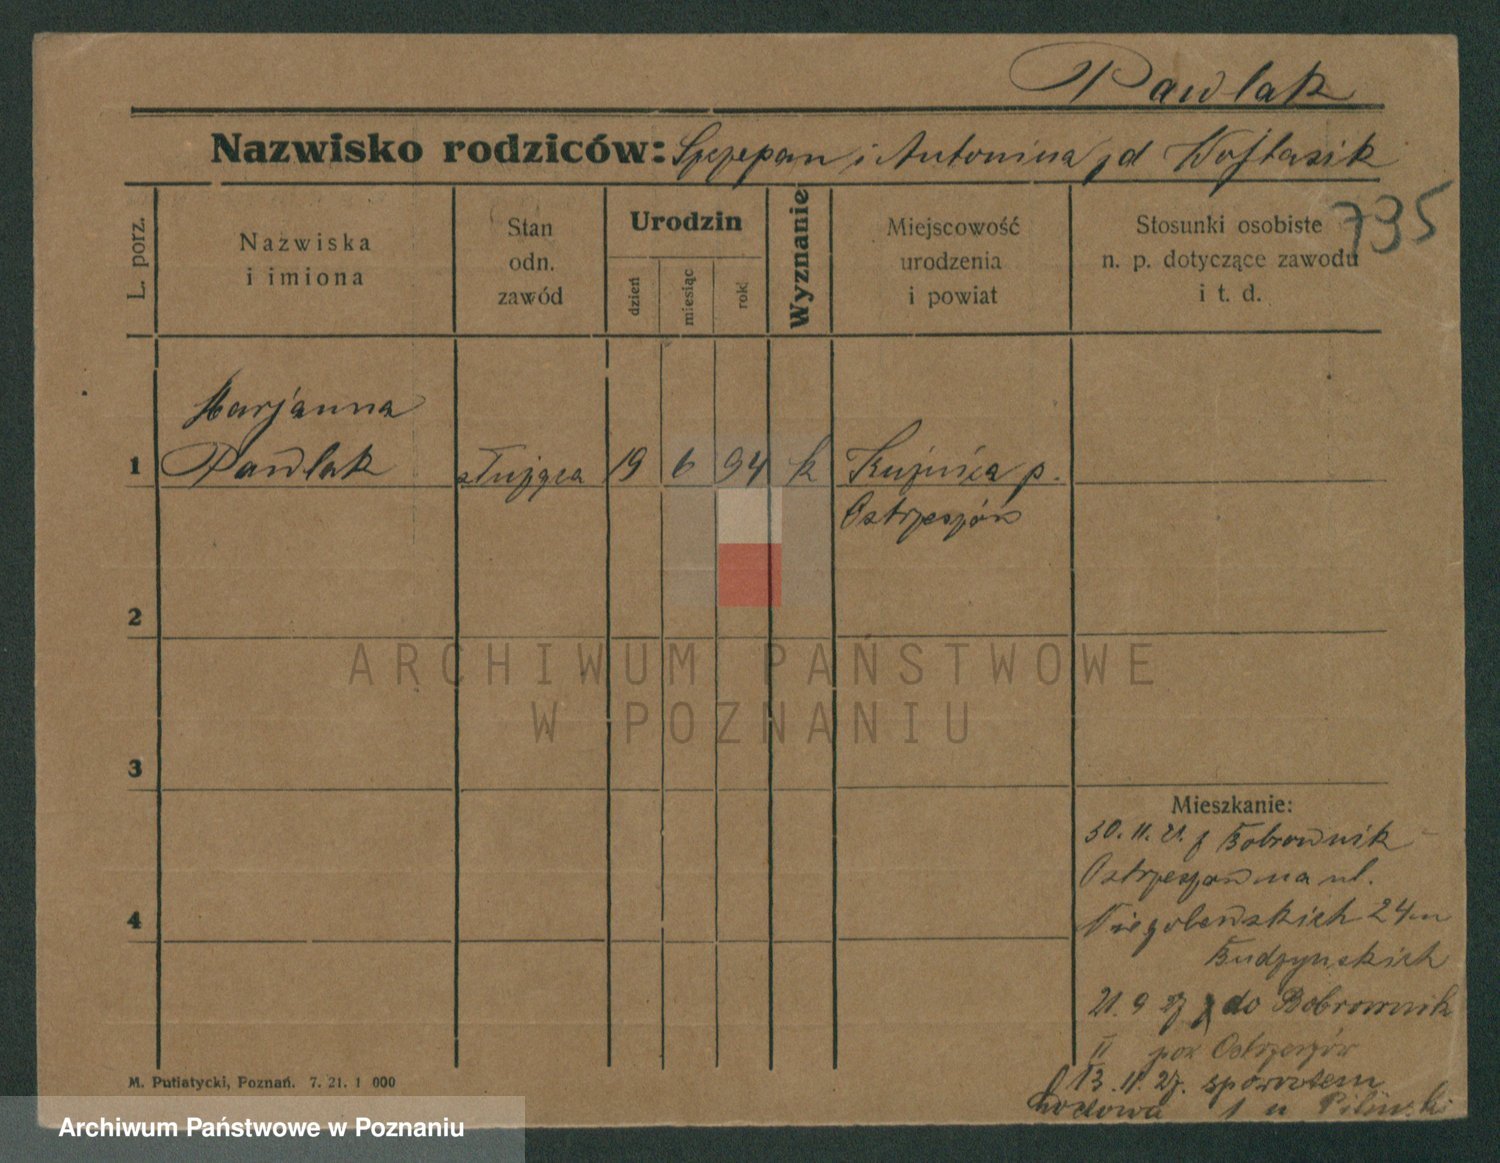 Pawlak
Nazwisko rodziców: Szczepan i Antonina zd Wojtasik
735
L. porz.
Nazwiska
i imiona
Stan
odn.
zawód
Urodzin
dzień
miesiąc
rok
Wyznanie
Miejscowość
urodzenia
i powiat
Stosunki osobiste
n. p. dotyczące zawodu
i t. d.
Marjanna
1 Pawlak służąca 19 6 94 k Kuźnica p.
Ostrzeszów
2
ARCHIWUM PAŃSTWOWE
W POZNANIU
3
Mieszkanie:
30. 11. 21. z Bobrownik
Ostrzeszów na ul.
4
Niegolewskich 24 u
Budzyńskich
21. 9 27 do Bobrownik
pow Ostrzeszów
13. 11. 27. spowrotem
1 u
M. Putiatycki, Poznań. 7. 21. 1 000
Archiwum Państwowe w Poznaniu